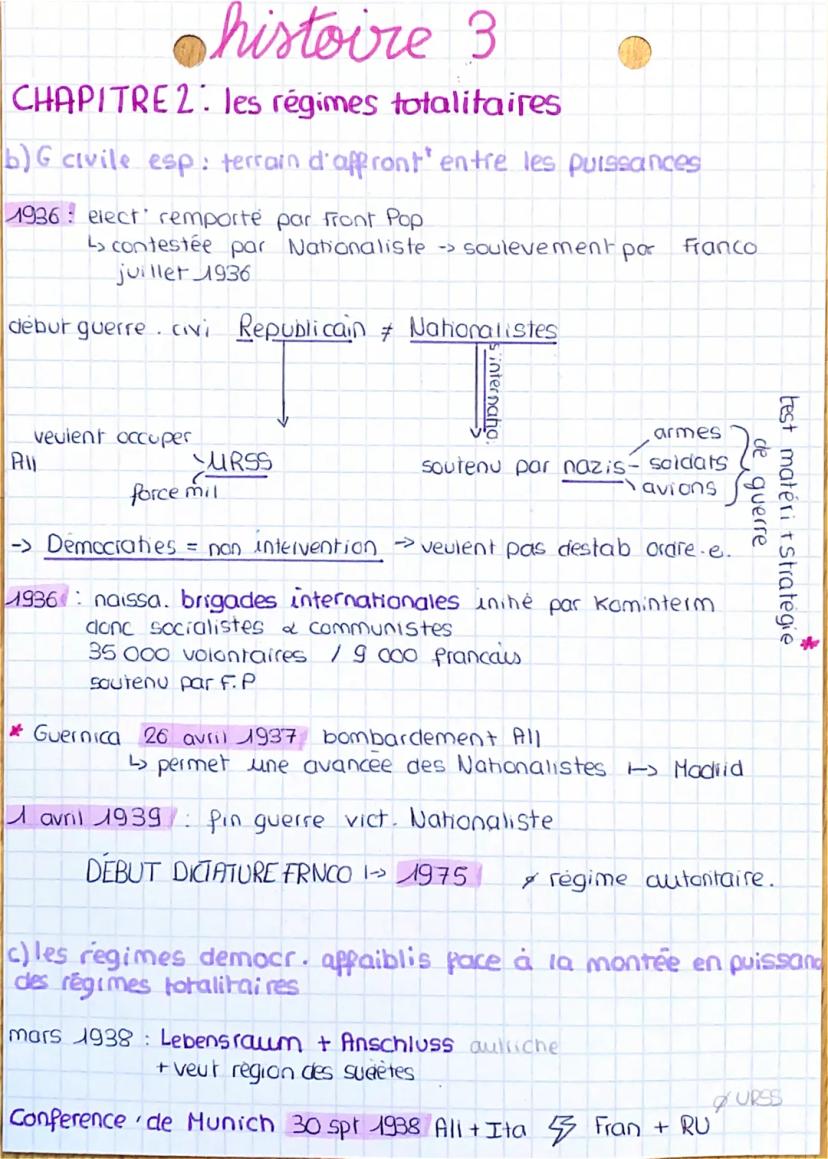 histoire 3
CHAPITRE 2 : les régimes totalitaires
b) G civile esp : terrain d'affront' entre les puissances
1936 : elect' remporté par Front Pop
↳ contestée par Nationaliste -> soulevement par Franco
juillet 1936
début guerre . civi Republicain ≠ Nationalistes
s'internatio.
veulent occuper
All
URSS
force mil
soutenu par nazis - soldats
armes
avions
test matéri + stratégie *
de guerre
-> Démocraties = non intervention -> veulent pas destab ordre.e.
1936 : naissa. brigades internationales initié par Kominterm
donc socialistes & communistes
35 000 volontaires / 9 000 francais
soutenu par F.P
* Guernica 26 avril 1937 bombardement All
↳ permet une avancée des Nationalistes |-> Madrid
1 avril 1939 : fin guerre vict. Nationaliste
DÉBUT DICTATURE FRNCO |-> 1975 ≠ régime autoritaire.
c) les régimes democr. affaiblis face à la montée en puissanc
des régimes totalitaires
mars 1938 : Lebensraum + Anschluss autriche
+ veut région des sudètes
Ø URSS
Conference de Munich 30 spt 1938 All + Ita ⚡ Fran + RU